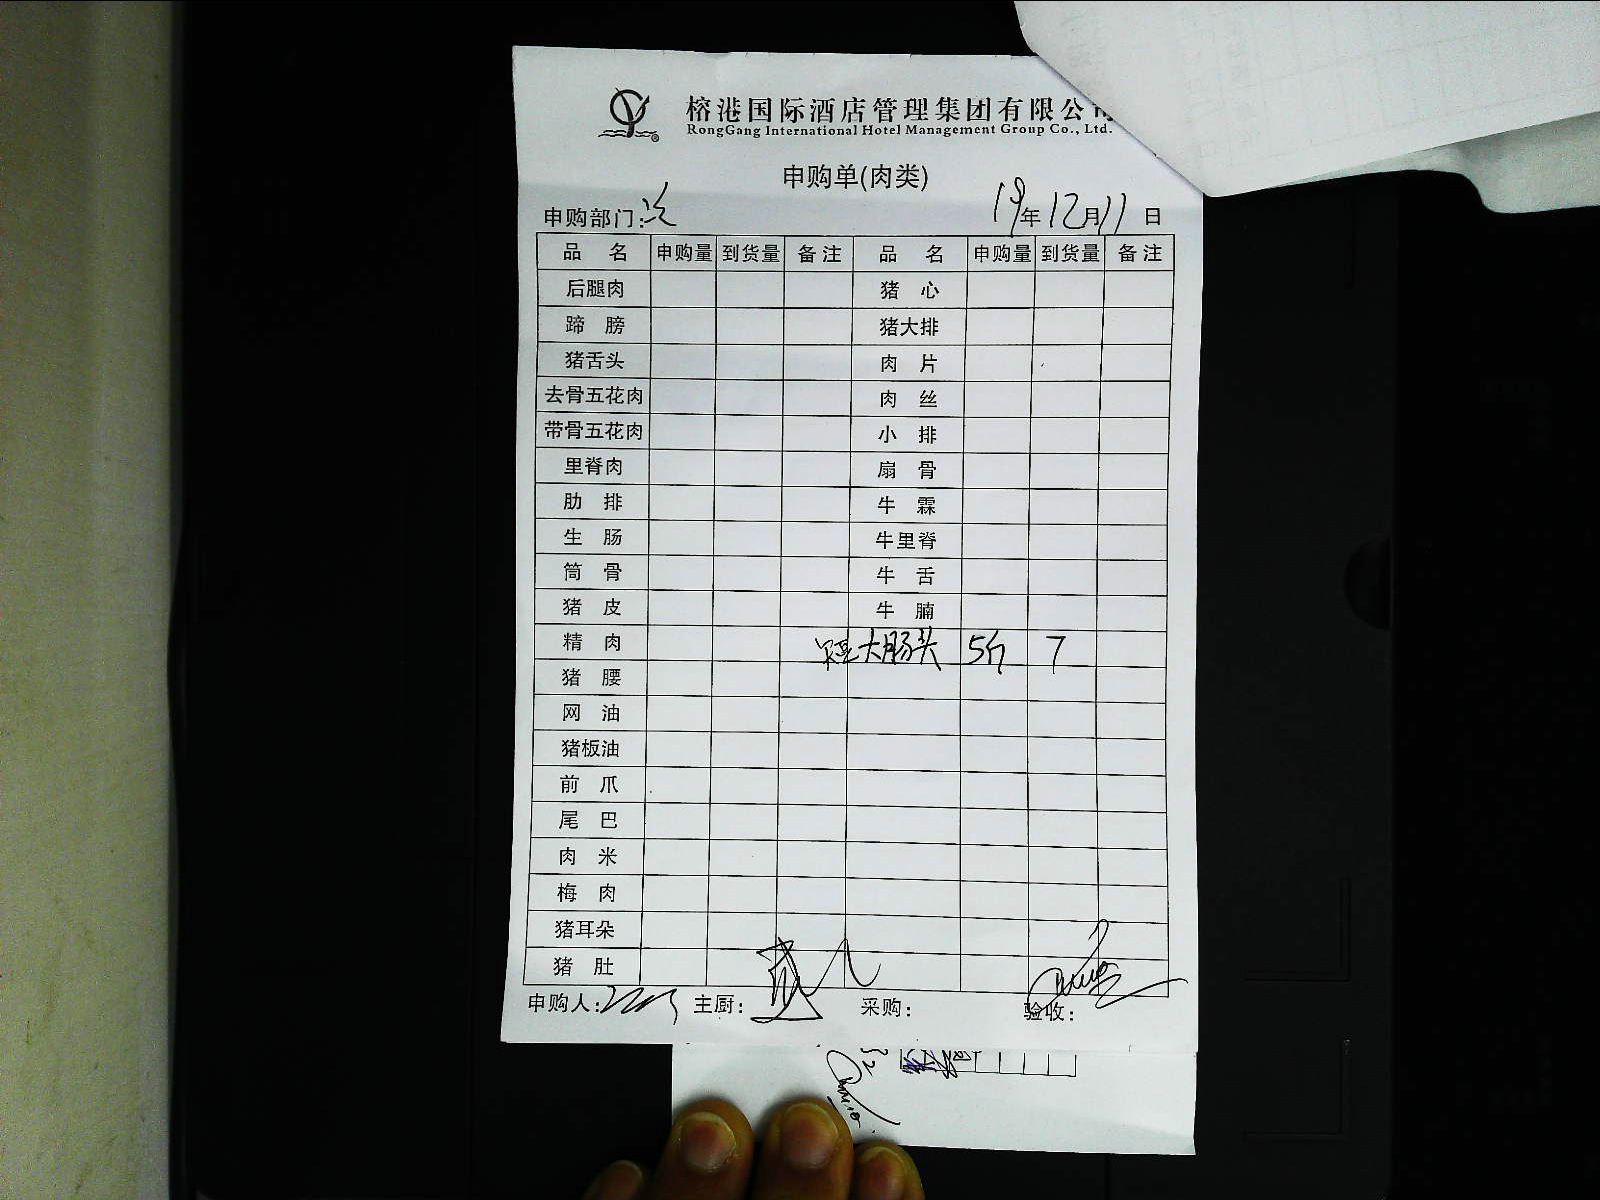 榕港国际酒店管理集团有限公司
RongGang International Hotel Management Group Co., Ltd.
申购单(肉类)
申购部门: 19年12月11日
品名 申购量 到货量 备注 品名 申购量 到货量 备注
后腿肉 猪心
蹄膀 猪大排
猪舌头 肉片
去骨五花肉 肉丝
带骨五花肉 小排
里脊肉 扇骨
肋排 牛霖
生肠 牛里脊
筒骨 牛舌
猪皮 牛腩
精肉 大肠头 5斤 7
猪腰
网油
猪板油
前爪
尾巴
肉米
梅肉
猪耳朵
猪肚
申购人: 主厨: 采购: 验收: